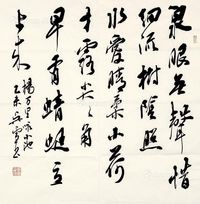 泉眼无聲惜
细流樹陰照
水愛晴柔小荷
才露尖尖角
早有蜻蜓立
上头
楊万里 小池
乙未